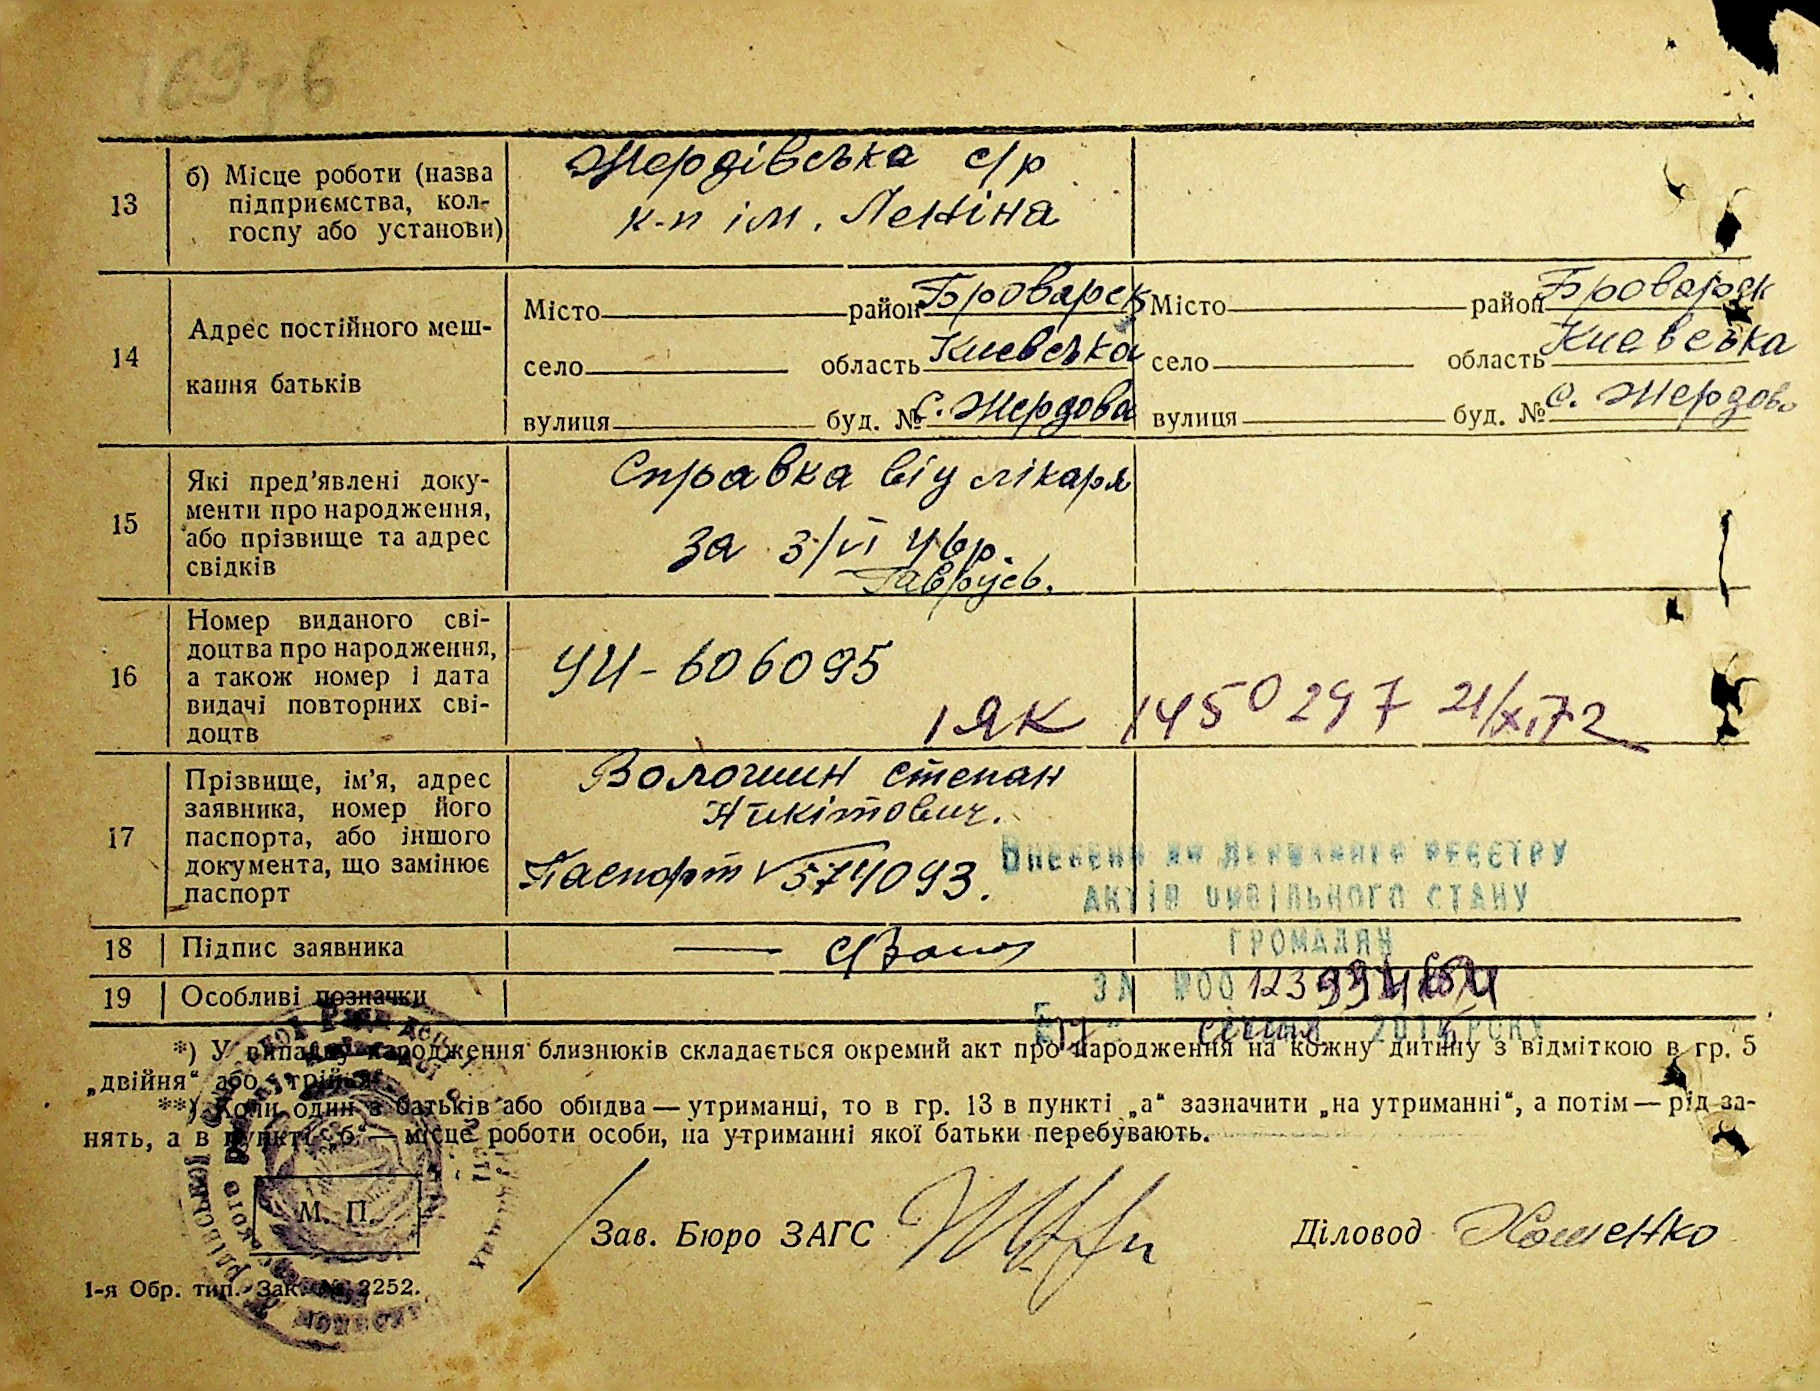 169
13
б) Місце роботи (назва
підприємства, кол-
госпу або установи)
Жердівська с/р
к-п ім. Леніна
14
Адрес постійного меш-
кання батьків
Місто район Броварск Місто район Броварск
село область Киевська село область Киевська
вулиця буд. № с. Жердова вулиця буд. № с. Жердово
15
Які пред'явлені доку-
менти про народження,
або прізвище та адрес
свідків
Справка від лікаря
за 3/VI 46р.
16
Номер виданого сві-
доцтва про народження,
а також номер і дата
видачі повторних сві-
доцтв
УЧ-606095
I ЯК 1450297 21/XI 72
17
Прізвище, ім'я, адрес
заявника, номер його
паспорта, або іншого
документа, що замінює
паспорт
Волошин Степан
Никітович.
Паспорт V 574093.
Внесено до Державного реєстру
актів цивільного стану
громадян
18 Підпис заявника
19 Особливі позначки
за №00123994
січня 201 року
*) У випадку народження близнюків складається окремий акт про народження на кожну дитину з відміткою в гр. 5
„двійня“ або „трійня“.
**) Коли один з батьків або обидва — утриманці, то в гр. 13 в пункті „а“ зазначити „на утриманні“, а потім — рід за-
нять, а в пункті „б“ — місце роботи особи, на утриманні якої батьки перебувають.
М. П.
Зав. Бюро ЗАГС
Діловод Хоменко
1-я Обр. тип. Зак. № 2252.